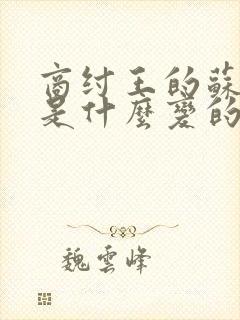 商纣王的蘇
是什麼變的
魏雲峰